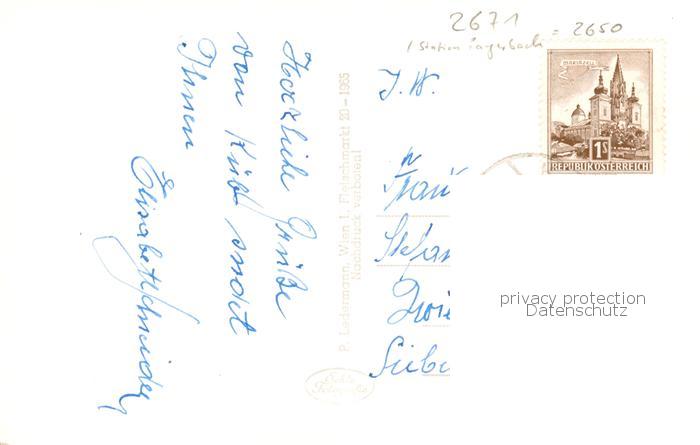 2671
1 Station Payerbach = 2650
Herzliche Grüße
von Küb sendet
Ihnen
Elisabeth Schneider
P. Ledermann, Wien I, Fleischmarkt 20 – 1965
Nachdruck verboten!
Echte
Fotografie
I. W.
Frau
Stefan
MARIAZELL
1S
REPUBLIK ÖSTERREICH
privacy protection
Datenschutz